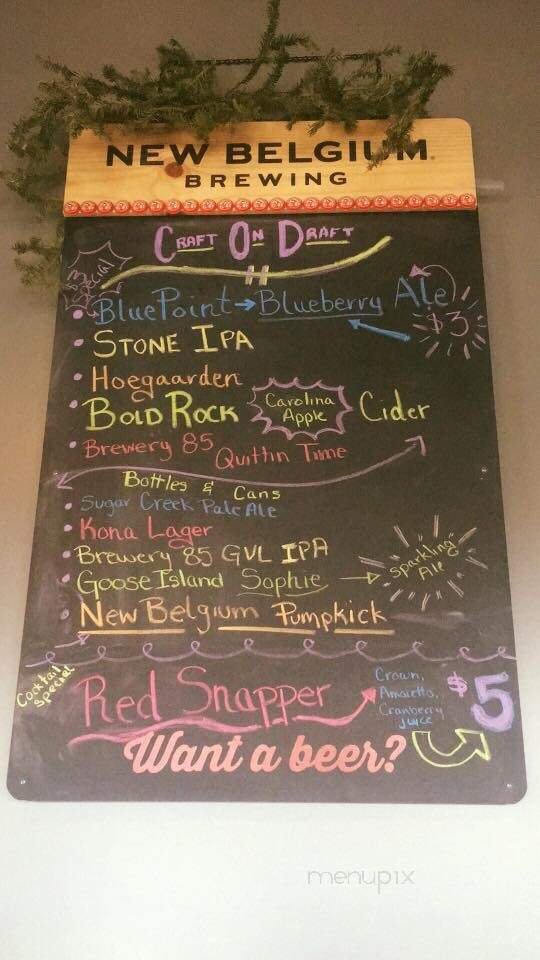 NEW BELGIUM
BREWING
CRAFT ON DRAFT
$3 Special
• BluePoint → Blueberry Ale
$3
• STONE IPA
• Hoegaarden
• BOLD ROCK Carolina Apple Cider
• Brewery 85 Quittin Time
Bottles & Cans
• Sugar Creek Pale Ale
• Kona Lager
• Brewery 85 GVL IPA
• Goose Island Sophie → Sparkling Ale
• New Belgium Pumpkick
Cocktail Special
Red Snapper
Crown,
Amaretto,
Cranberry
Juice
$5
Want a beer?
menupix